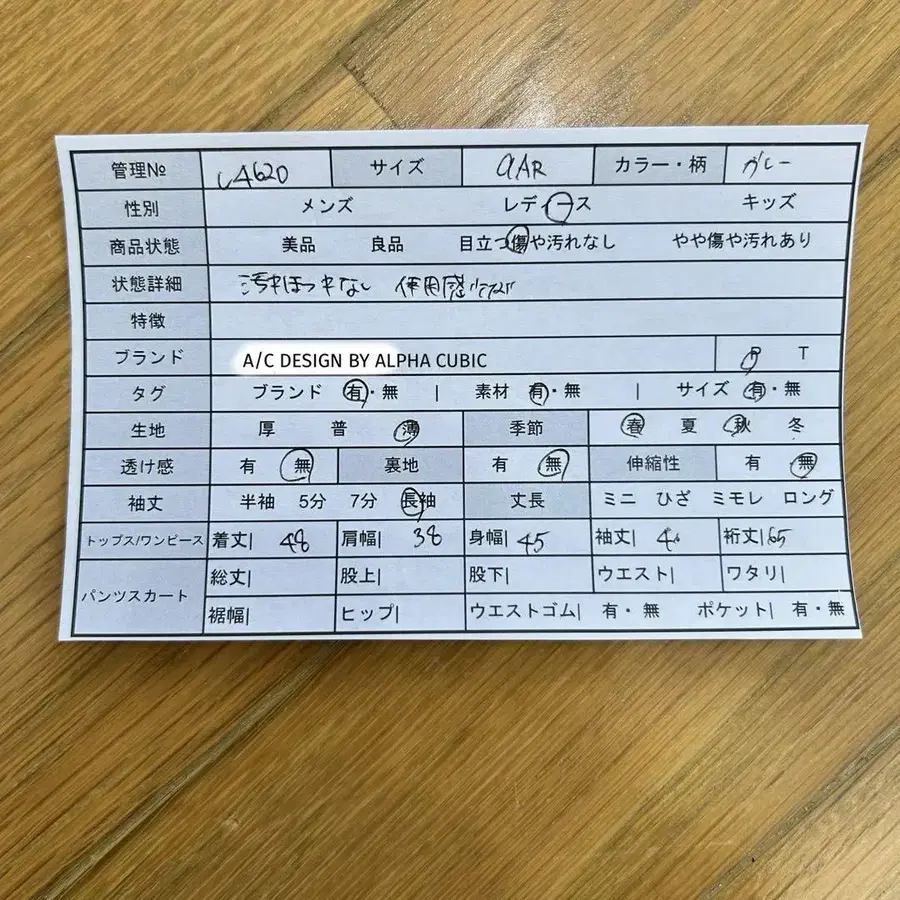 管理№ U4620 サイズ 9AR カラー・柄 グレー
性別 メンズ レディース キッズ
商品状態 美品 良品 目立つ傷や汚れなし やや傷や汚れあり
状態詳細 汚れほつれなし 使用感
特徴
ブランド A/C DESIGN BY ALPHA CUBIC P T
タグ ブランド 有・無 | 素材 有・無 | サイズ 有・無
生地 厚 普 薄 季節 春 夏 秋 冬
透け感 有 無 裏地 有 無 伸縮性 有 無
袖丈 半袖 5分 7分 長袖 丈長 ミニ ひざ ミモレ ロング
トップス/ワンピース 着丈| 48 肩幅| 38 身幅| 45 袖丈| 裄丈| 65
パンツスカート 総丈| 股上| 股下| ウエスト| ワタリ|
裾幅| ヒップ| ウエストゴム| 有・無 ポケット| 有・無